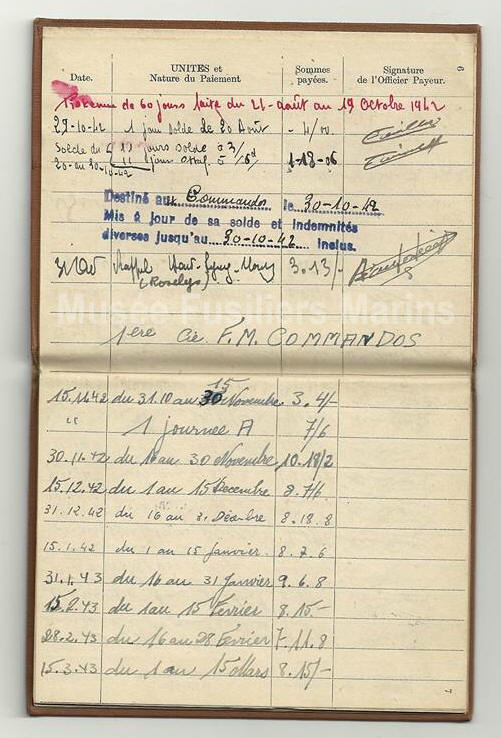 9
Date. UNITES et Nature du Paiement Sommes payées. Signature de l'Officier Payeur.
de 60 jours faite du 21 août au 19 Octobre 1942
29-10-42 1 jour solde de 20 Août - 4/
Solde du jours solde à 3/
20 au 30-10-42 11 jours à 1-18-06
Destiné aux Commandos le 30-10-42
Mis à jour de sa solde et indemnités
diverses jusqu'au 30-10-42 inclus.
Rappel 3.13/-
(Roselys)
Musée Fusiliers Marins
1ere Cie F.M. COMMANDOS
15
15.11.42 du 31.10 au 30 Novembre 3.4/-
" 1 journée A 7/6
30.11.42 du 16 au 30 Novembre 10.18/2
15.12.42 du 1 au 15 Decembre 8.7/6
31.12.42 du 16 au 31 Décembre 8.18.8
15.1.42 du 1 au 15 Janvier. 8.7.6
31.1.43 du 16 au 31 Janvier 9.6.8
15.2.43 du 1 au 15 Fevrier 8.15-
28.2.43 du 16 au 28 Fevrier 7.11.8
15.3.43 du 1 au 15 Mars 8.15/-
7